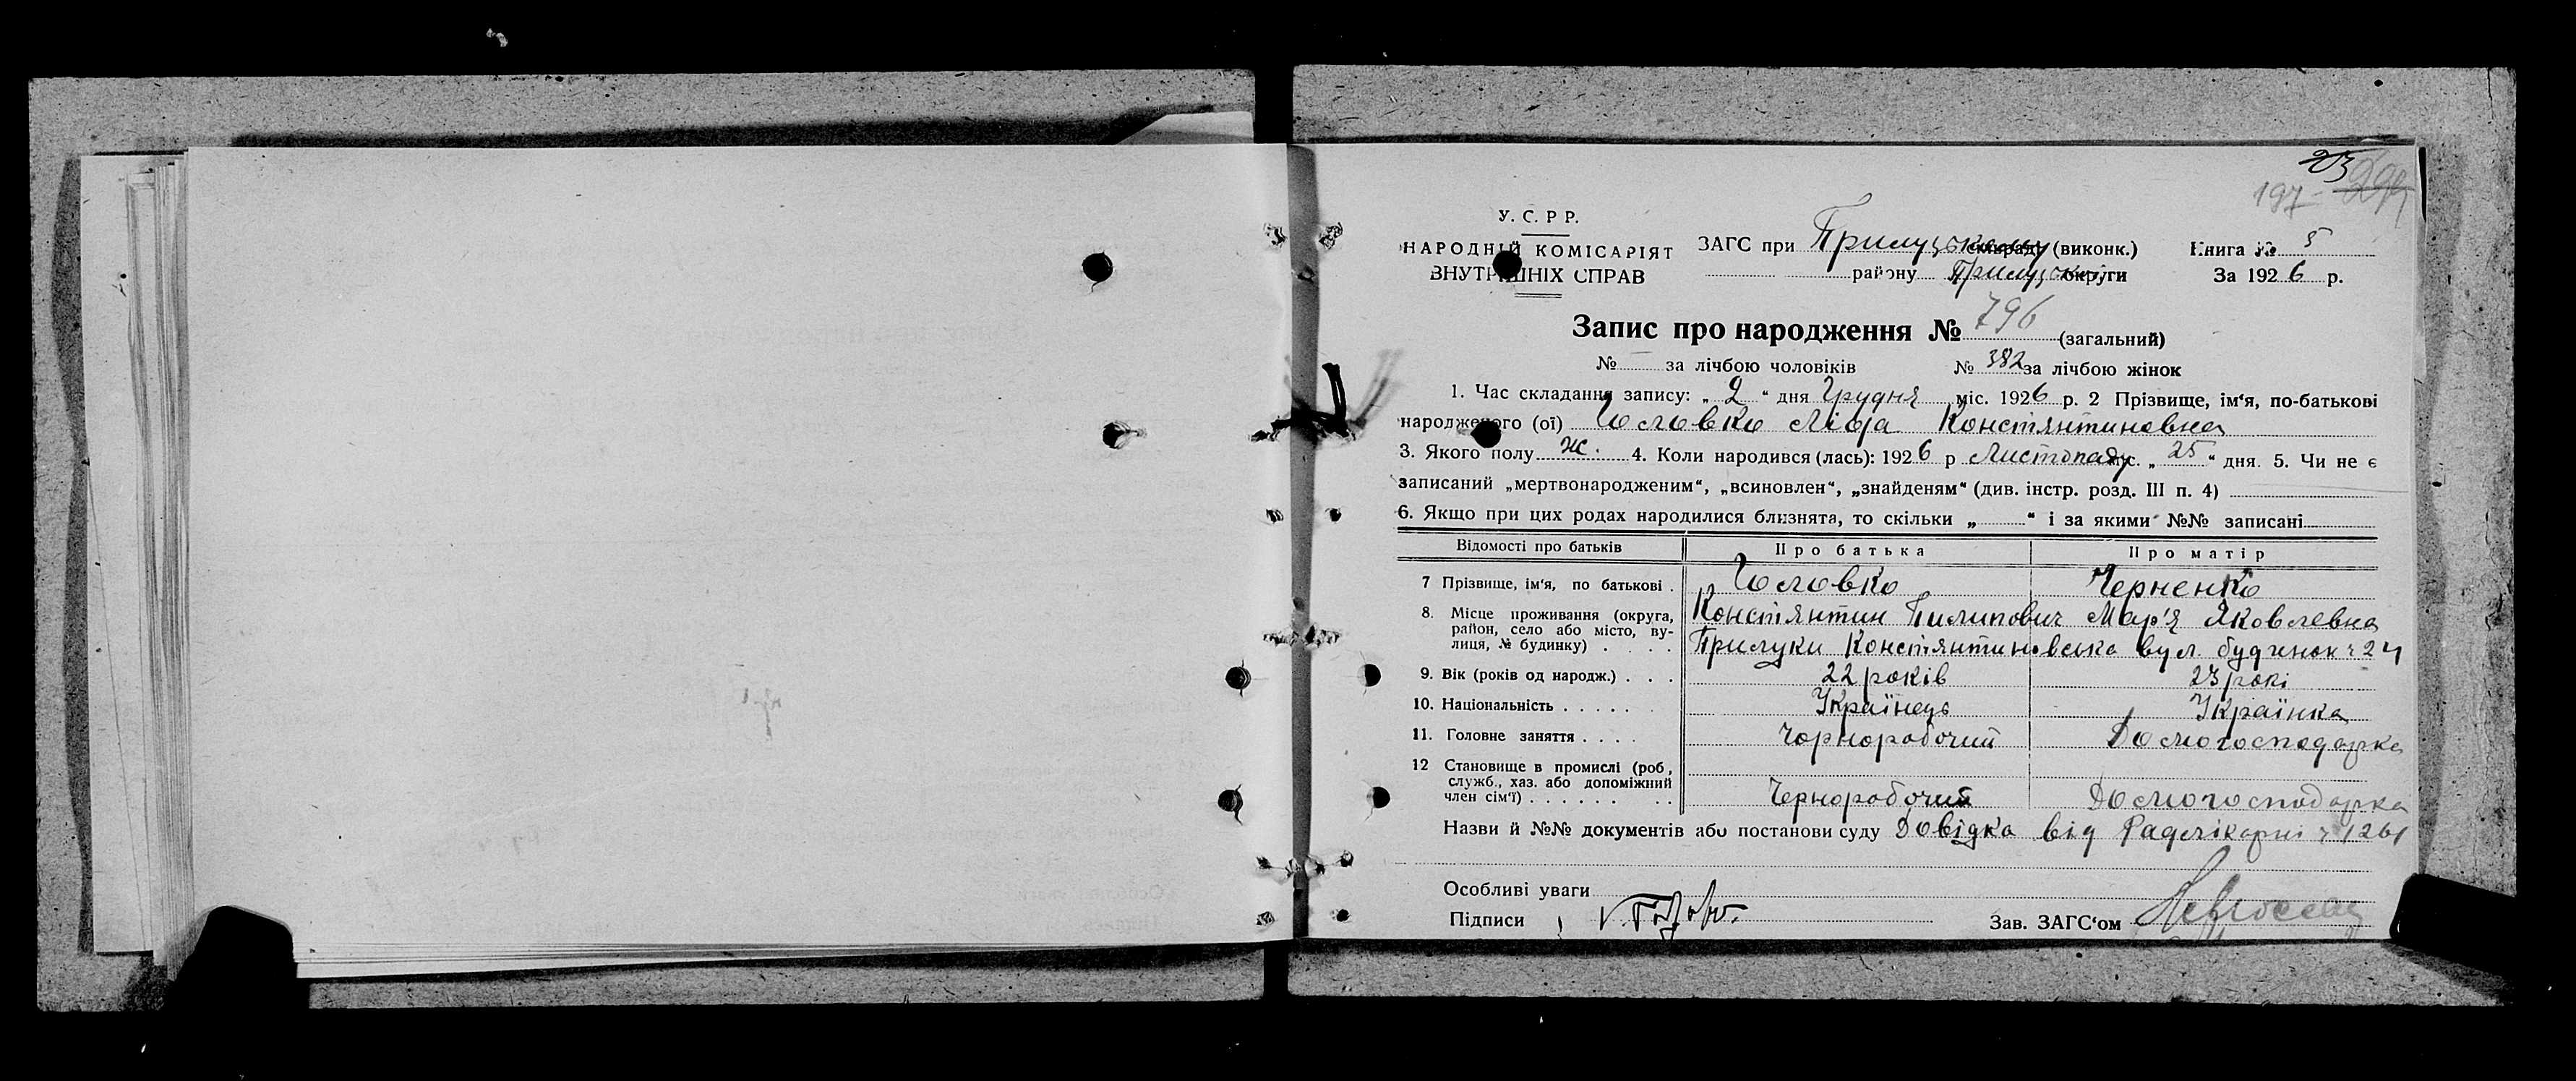 23
197
У. С. Р Р.
НАРОДНІЙ КОМІСАРІЯТ
ВНУТРІШНІХ СПРАВ
ЗАГС при Прилуцькому (виконк.)
району Прилуцької округи
Книга № 5
За 1926 р.
Запис про народження № 796 (загальний)
№ за лічбою чоловіків № 382 за лічбою жінок
1. Час складання запису: „ 2 “ дня Грудня міс. 1926 р. 2 Прізвище, ім‘я, по-батькові
народженого (ої) Головко Ліда Констянтиновна
3. Якого полу ж. 4. Коли народився (лась): 1926 р Листопаду міс. „ 25 “ дня. 5. Чи не є
записаний „мертвонародженим“, „всиновлен“, „знайденям“ (див. інстр. розд. III п. 4)
6. Якщо при цих родах народилися близнята, то скільки „ “ і за якими №№ записані
Відомості про батьків Про батька Про матір
7 Прізвище, ім‘я, по батькові . Головко Черненко
8. Місце проживання (округа, район, село або місто, ву-лиця, № будинку) . . . . Констянтин Пилипович Мар'я Яковлевна
Прилуки Констянтиновська вул. будинок ч 24
9. Вік (років од народж.) . . . 22 років 23 рокі
10. Національність . . . . . Українець Українка
11. Головне заняття . . . . Чорноробочий Домогосподарка
12 Становище в промислі (роб, служб., хаз. або допоміжний член сім‘ї) . . . . . . . . Чернорабочий Домогосподарка
Назви й №№ документів або постанови суду Довідка від Радлікарні ч 1261
Особливі уваги
Підписи
Зав. ЗАГС‘ом